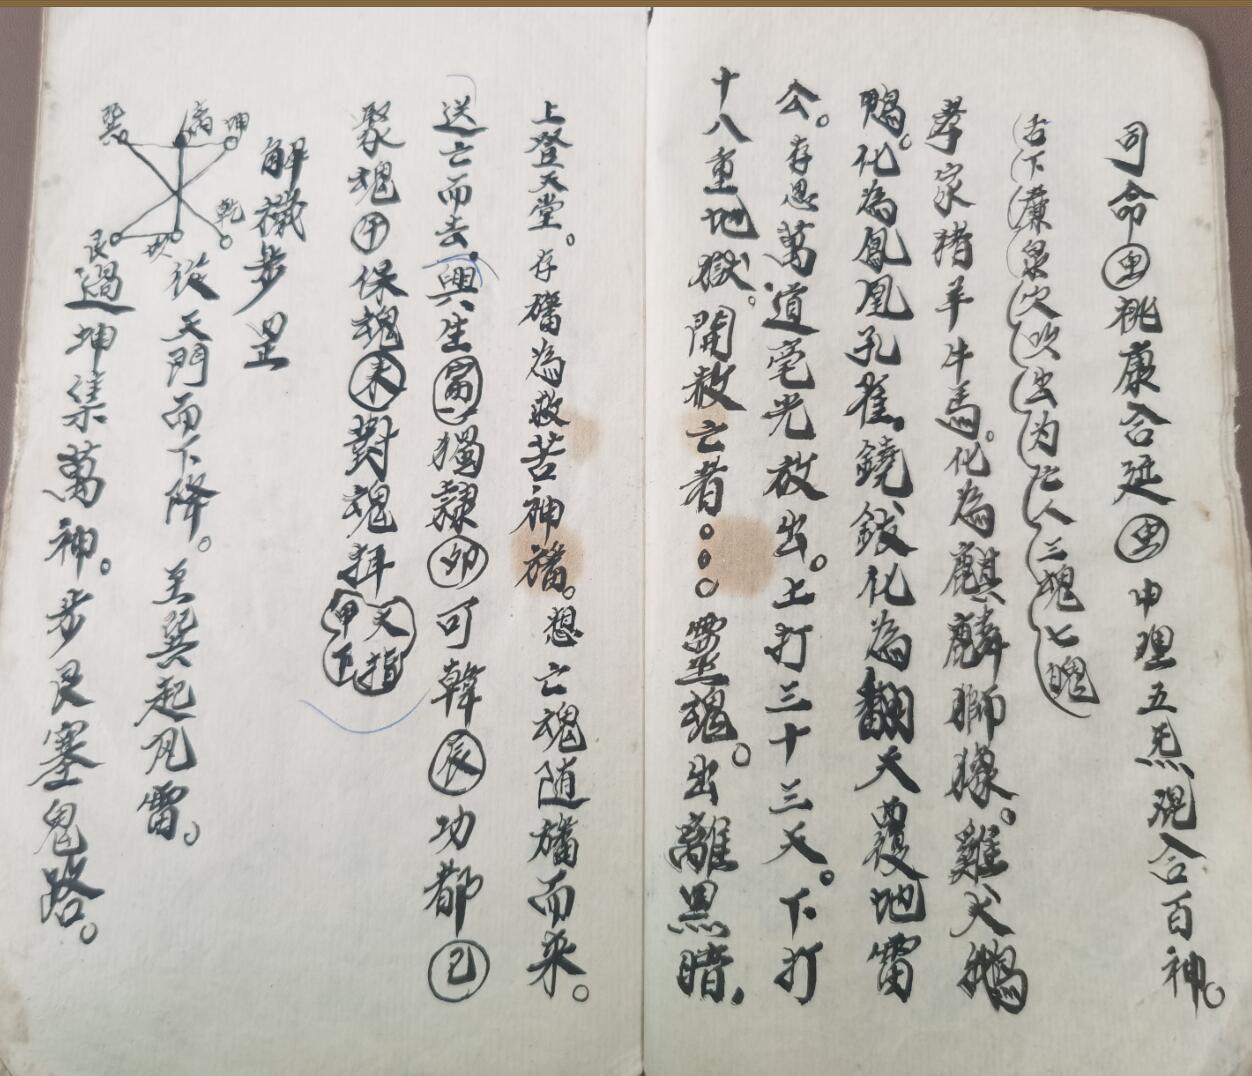 司命虫桃康合延虫中理五炁混合百神。
舌下廉泉穴吹出为亡人三魂七魄
孝家猪羊牛馬。化為麒麟獅𤠔。雞犬鵝
鴨。化為鳳凰孔雀。鐃鈸化為翻天覆地雷
公。存思萬道毫光放出。上打三十三天。下打
十八重地獄。開赦亡者:。靈魂。出離黑暗,
上登天堂。存旛為救苦神旛。想亡魂随旛而来。
送亡而去。與生酉獨隸卯可韓辰功都巳
聚魂午保魂未對魂珥甲下叉指
解穢步罡
巽 离 坤 乾 坎 艮
從天門而下降。至巽起風雷。
過坤集萬神。步艮塞鬼路。